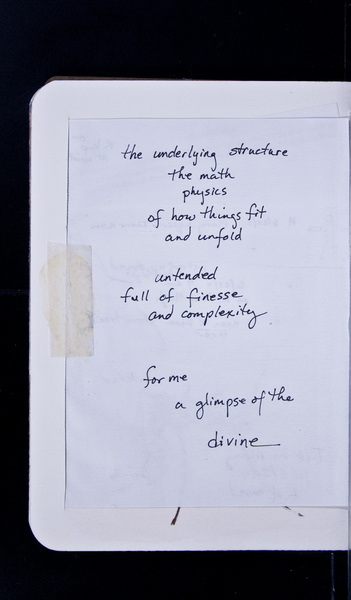 the underlying structure
the math
physics
of how things fit
and unfold
untended
full of finesse
and complexity
for me
a glimpse of the
divine